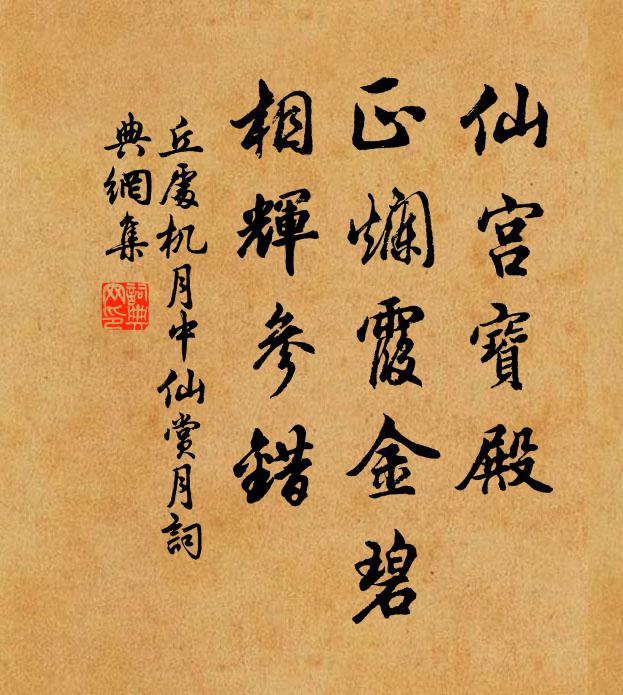 仙宫寶殿
正爛霞金碧
相輝參錯
丘處机月中仙赏月詞
典網集
詞典網印